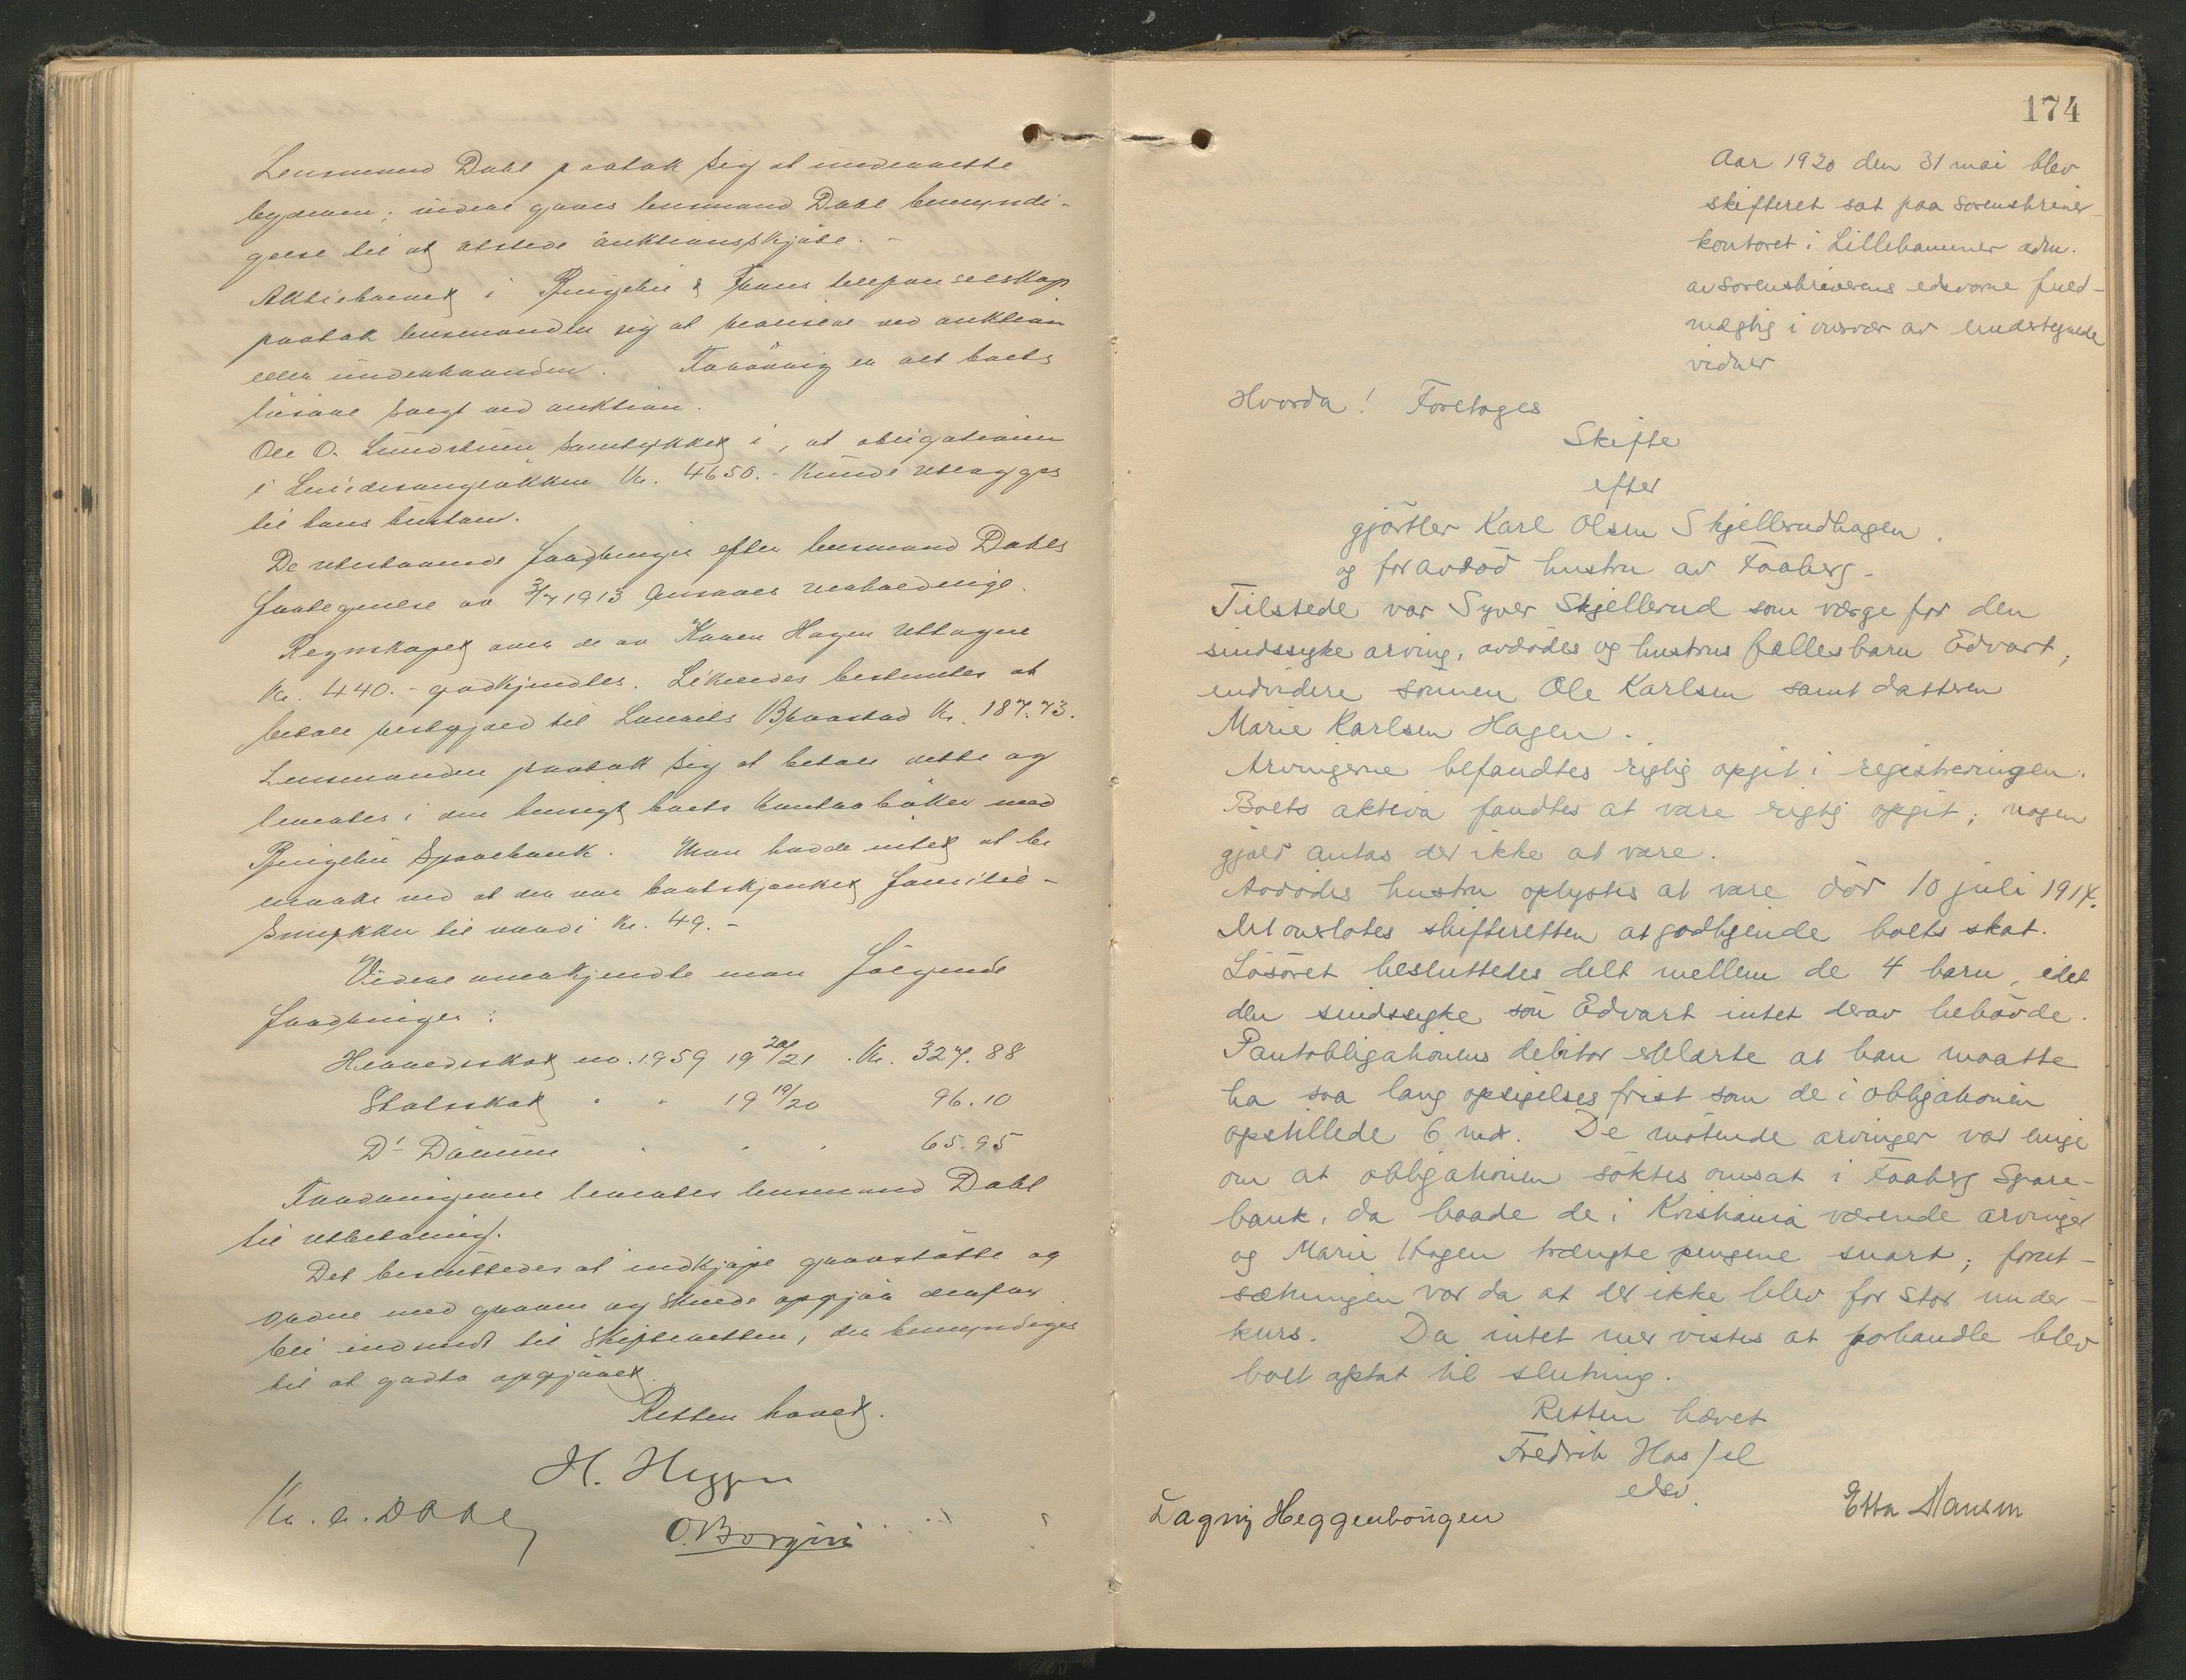 Lensmand Dahl paatok sig at underrette
byderen; videre gaves lensmand Dahl bemyndi-
gelse til at utstede auktionsskjøte. -
Aktiebrevet i Ringebu & Frons telefonselskap
paatok lensmanden sig at realisere ved auktion
eller underhaanden. Forøvrig er alt boets
løsøre solgt ved auktion.
Ole O. Lundstuen samtykket i, at obligationen
i Kr. 4650.- kunde utlægges
til hans hustru.
De utestaaende fordringer efter lensmand Dahls
fortegnelse av 3/7 1913 ansaaes uerholdelige.
Regnskapet over de av Karen Hagen uttagne
Kr. 440.- godkjendtes. Likeledes bestemtes at
betale restgjæld til Braastad Kr. 187.73.
Lensmanden paatok sig at betale dette og
leveredes i den hensigt boets kontrabøker med
Ringebu Sparebank. Man hadde intet at be
merke ved at der var bortskjænket familie-
smykker til værdi Kr. 49.-
Videre anerkjendte man følgende
fordringer:
Herredsskat no. 1959 19 20/21 . Kr. 327.88
Statsskat " " 19 19/20 96.10
Do Domme " " " 65.95
Fordringerne leveredes lensmand Dahl
til utbetaling.
Det besluttedes at indkjøpe gravstøtte og
ordne med graven og skulde opgjør derfor
bli indsendt til skifteretten, der bemyndiges
til at godta opgjøret.
Retten hævet.
H. Heggen
Kr. A. Dahl
O. Borgin
174
Aar 1920 den 31 mai blev
skifteret sat paa sorenskriver-
kontoret i Lillehammer adm.
av sorenskriverens edsvorne fuld-
mægtig i overvær av undertegnede
vidner
Hvorda! Foretoges
Skifte
efter
gjørtler Karl Olsen Skjellerudhagen.
og foravdød hustru av Faaberg.
Tilstede var Syver Skjellerud som værge for den
sindssyke arving, avdødes og hustrus fællesbarn Edvart,
endvidere sønnen Ole Karlsen samt datteren
Marie Karlsen Hagen.
Arvingerne befandtes rigtig opgit i registreringen.
Boets aktiva fandtes at være rigtig opgit; nogen
gjæld antas der ikke at være.
Avdødes hustru oplystes at være død 10 juli 1914.
Det overlotes skifteretten at godkjende boets skat.
Løsøret besluttedes delt mellem de 4 barn, idet
den sindssyke søn Edvart intet derav behøvde.
Pantobligationens debitor erklærte at han maatte
ha saa lang opsigelsesfrist som de i obligationen
opstillede 6 md. De møtende arvinger var enige
om at obligationen søktes omsat i Faaberg Spare-
bank, da baade de i Kristiania værende arvinger
og Marie Hagen trængte pengene snart; forut-
sætningen var da at der ikke blev for stor under-
kurs. Da intet mer vistes at forhandle blev
boet optat til slutning.
Retten hævet
Fredrik Hassel
edsv.
Dagny Heggenhougen
Etta Hansen